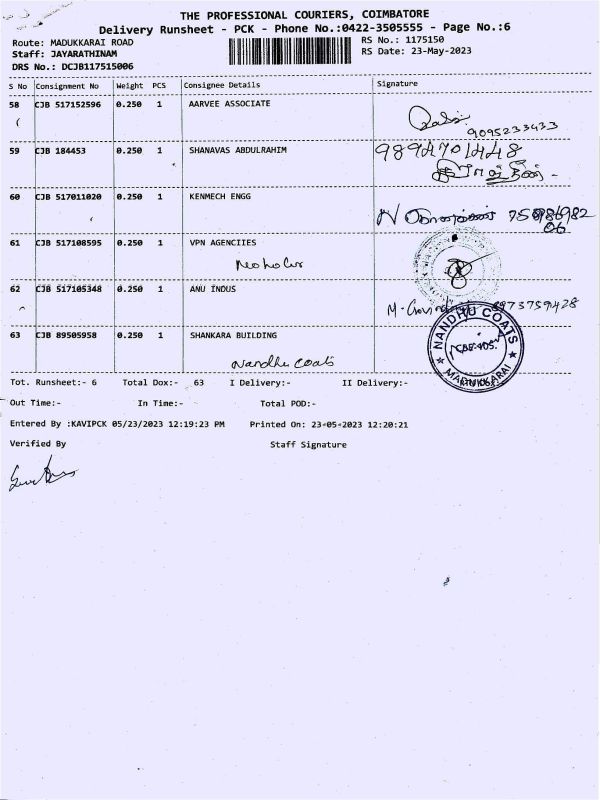 THE PROFESSIONAL COURIERS, COIMBATORE
Delivery Runsheet - PCK - Phone No.:0422-3505555 - Page No.:6
Route: MADUKKARAI ROAD
RS No.: 1175150
Staff: JAYARATHINAM
RS Date: 23-May-2023
DRS No.: DCJB117515006
S No Consignment No Weight PCS Consignee Details Signature
58 CJB 517152596 0.250 1 AARVEE ASSOCIATE
9095233433
59 CJB 184453 0.250 1 SHANAVAS ABDULRAHIM
9894701448
60 CJB 517011020 0.250 1 KENMECH ENGG
N
06
61 CJB 517108595 0.250 1 VPN AGENCIIES
62 CJB 517105348 0.250 1 ANU INDUS
M. Govind 8973759428
63 CJB 89505958 0.250 1 SHANKARA BUILDING
Nandhu Coats
NANDHU COATS
CBE-105.
MADUKKARAI
Tot. Runsheet:- 6 Total Dox:- 63 I Delivery:- II Delivery:-
Out Time:- In Time:- Total POD:-
Entered By :KAVIPCK 05/23/2023 12:19:23 PM Printed On: 23-05-2023 12:20:21
Verified By Staff Signature